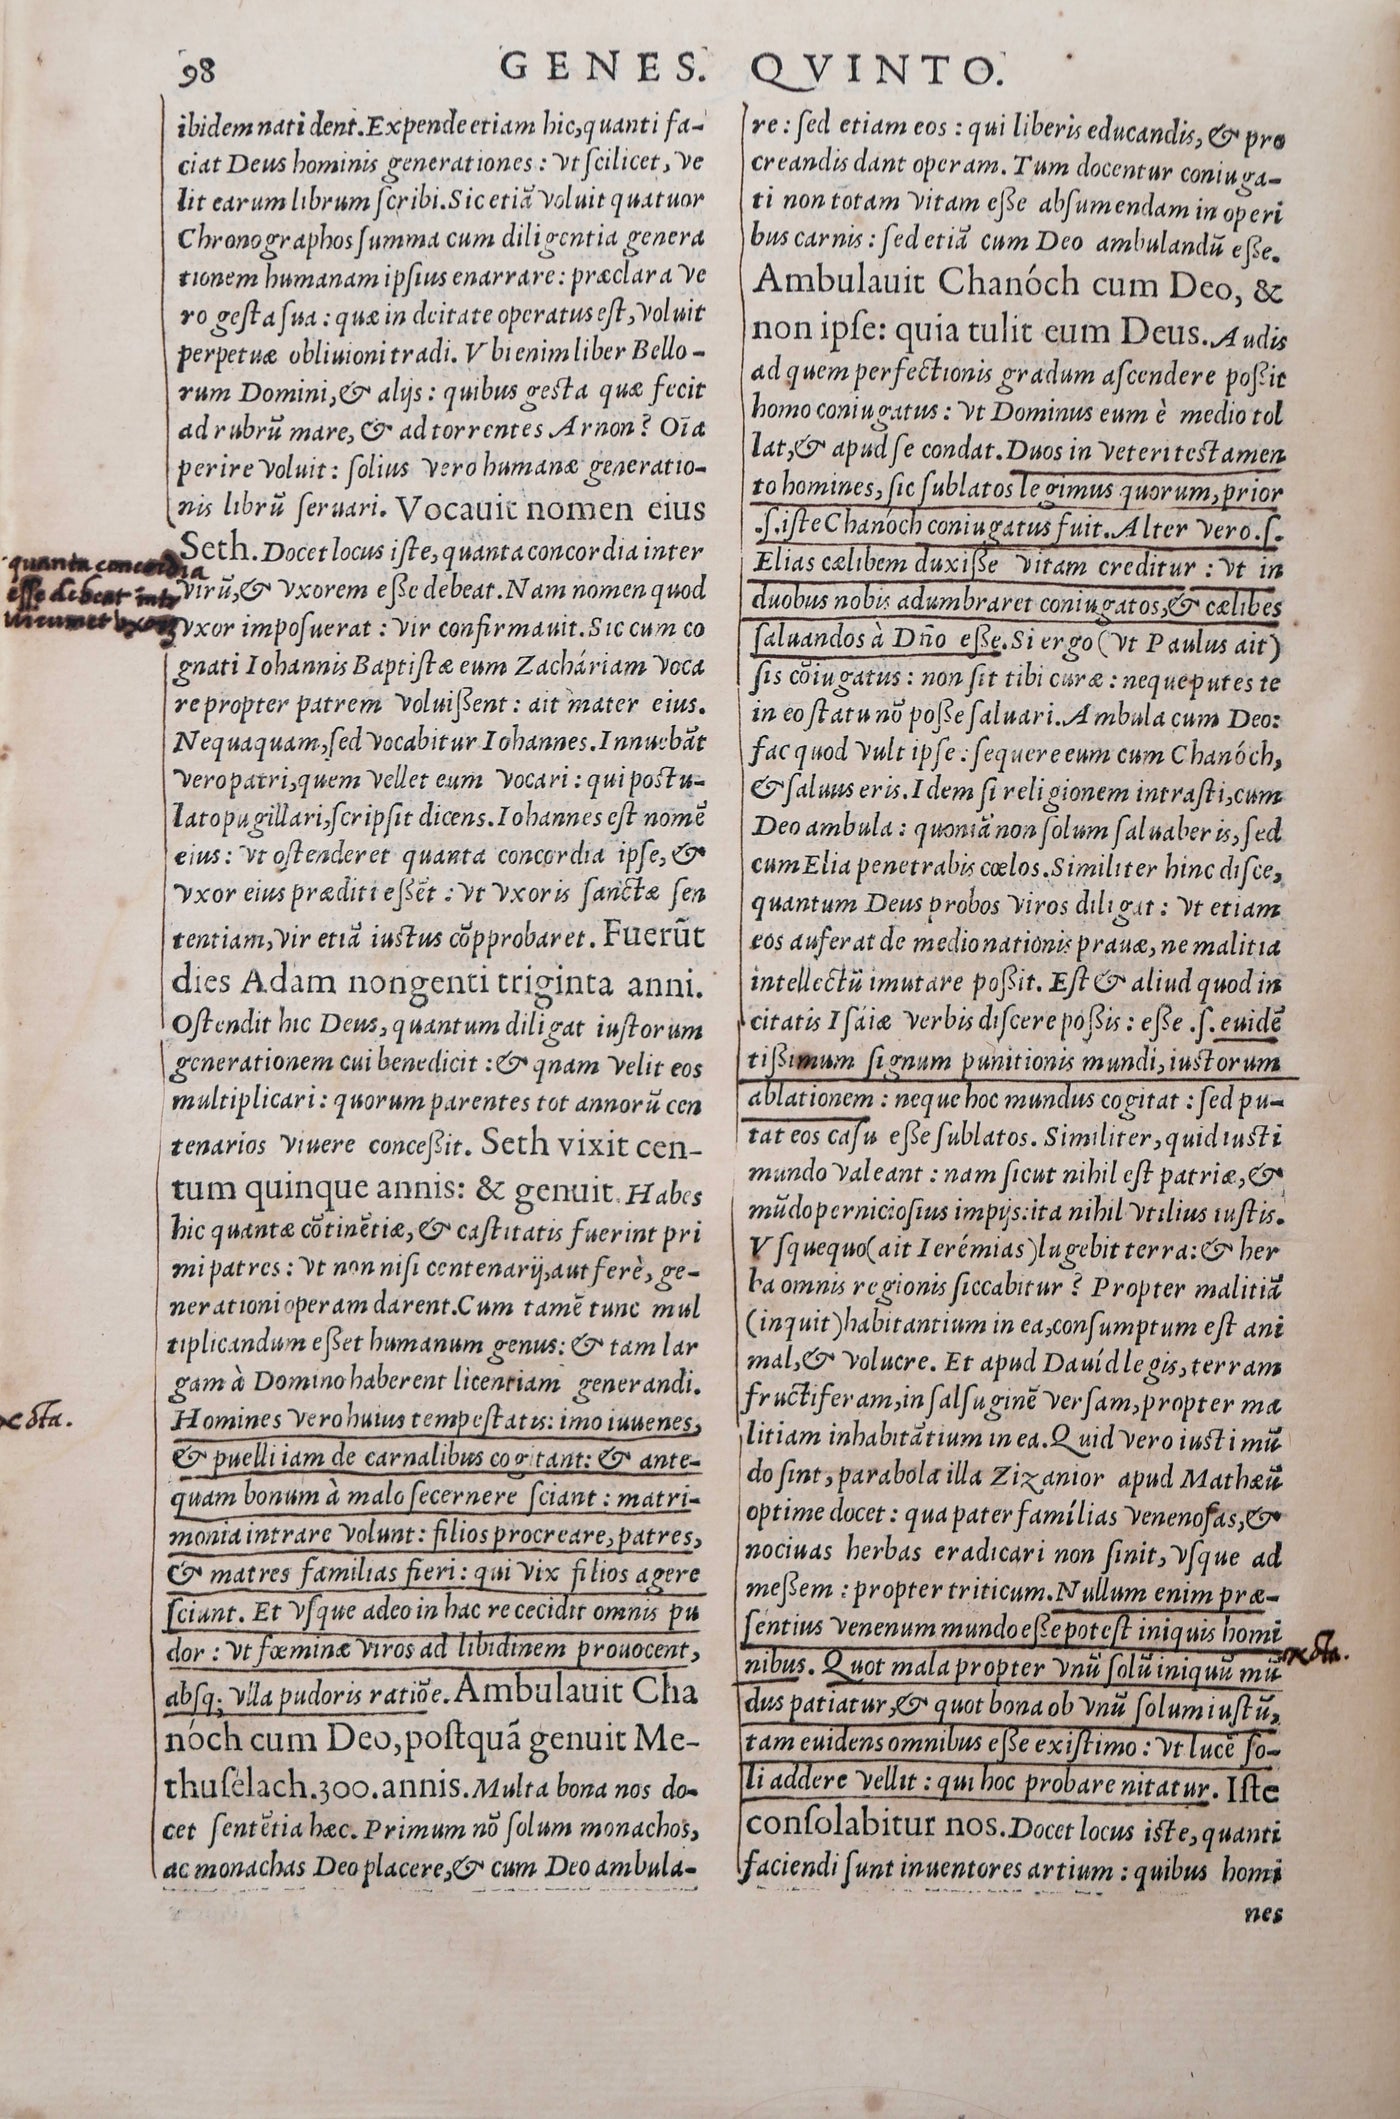 98 GENES. QVINTO.
ibidem nati dent. Expende etiam hic, quanti fa-
ciat Deus hominis generationes: vt scilicet, ve
lit earum librum scribi. Sic etiã voluit quatuor
Chronographos summa cum diligentia genera
tionem humanam ipsius enarrare: præclara ve
ro gesta sua: quæ in deitate operatus est, voluit
perpetuæ obliuioni tradi. Vbi enim liber Bello-
rum Domini, & alijs: quibus gesta quæ fecit
ad rubrũ mare, & ad torrentes Arnon? Oĩa
perire voluit: solius vero humanæ generatio-
nis librũ seruari. Vocauit nomen eius
Seth. Docet locus iste, quanta concordia inter
virũ, & vxorem esse debeat. Nam nomen quod
vxor imposuerat: vir confirmauit. Sic cum co
gnati Iohannis Baptistæ eum Zacháriam voca
re propter patrem voluissent: ait mater eius.
Nequaquam, sed vocabitur Iohannes. Innuebãt
vero patri, quem vellet eum vocari: qui postu-
lato pugillari, scripsit dicens. Iohannes est nomẽ
eius: vt ostenderet quanta concordia ipse, &
vxor eius præditi essẽt: vt vxoris sanctæ sen
tentiam, vir etiã iustus cõpprobaret. Fuerũt
dies Adam nongenti triginta anni.
Ostendit hic Deus, quantum diligat iustorum
generationem cui benedicit: & qnam velit eos
multiplicari: quorum parentes tot annorũ cen
tenarios viuere concessit. Seth vixit cen-
tum quinque annis: & genuit. Habes
hic quantæ cõtinẽtiæ, & castitatis fuerint pri
mi patres: vt non nisi centenarij, aut ferè, ge-
nerationi operam darent. Cum tamẽ tunc mul
tiplicandum esset humanum genus: & tam lar
gam à Domino haberent licentiam generandi.
Homines vero huius tempestatis: imo iuuenes,
& puelli iam de carnalibus cogitant: & ante-
quam bonum à malo secernere sciant: matri-
monia intrare volunt: filios procreare, patres,
& matres familias fieri: qui vix filios agere
sciunt. Et vsque adeo in hac re cecidit omnis pu
dor: vt fœminæ viros ad libidinem prouocent,
absq; vlla pudoris ratiõe. Ambulauit Cha
nóch cum Deo, postquã genuit Me-
thuselach. 300. annis. Multa bona nos do-
cet sentẽtia hæc. Primum nõ solum monachos,
ac monachas Deo placere, & cum Deo ambula-
quanta concordia
esse debeat inter
virum et vxorem
nota.
re: sed etiam eos: qui liberis educandis, & pro
creandis dant operam. Tum docentur coniuga-
ti non totam vitam esse absumendam in operi
bus carnis: sed etiã cum Deo ambulandũ esse.
Ambulauit Chanóch cum Deo, &
non ipse: quia tulit eum Deus. Audis
ad quem perfectionis gradum ascendere possit
homo coniugatus: vt Dominus eum è medio tol
lat, & apud se condat. Duos in veteri testamen
to homines, sic sublatos legimus quorum, prior
.s. iste Chanóch coniugatus fuit. Alter vero .s.
Elias cælibem duxisse vitam creditur: vt in
duobus nobis adumbraret coniugatos, & cælibes
saluandos à Dño esse. Si ergo (vt Paulus ait)
sis cõiugatus: non sit tibi curæ: neque putes te
in eo statu nõ posse saluari. Ambula cum Deo:
fac quod vult ipse: sequere eum cum Chanóch,
& saluus eris. Idem si religionem intrasti, cum
Deo ambula: quoniã non solum saluaberis, sed
cum Elia penetrabis cœlos. Similiter hinc disce,
quantum Deus probos viros diligat: vt etiam
eos auferat de medio nationis prauæ, ne malitia
intellectũ imutare possit. Est & aliud quod in
citatis Isáiæ verbis discere possis: esse .s. euidẽ
tissimum signum punitionis mundi, iustorum
ablationem: neque hoc mundus cogitat: sed pu-
tat eos casu esse sublatos. Similiter, quid iusti
mundo valeant: nam sicut nihil est patriæ, &
mũdo perniciosius impijs: ita nihil vtilius iustis.
Vsquequo (ait Ierémias) lugebit terra: & her
ba omnis regionis siccabitur? Propter malitiã
(inquit) habitantium in ea, consumptum est ani
mal, & volucre. Et apud Dauíd legis, terram
fructiferam, in salsuginẽ versam, propter ma
litiam inhabitãtium in ea. Quid vero iusti mũ
do sint, parabola illa Zizanior apud Mathæũ
optime docet: qua pater famílias venenosas, &
nociuas herbas eradicari non sinit, vsque ad
messem: propter triticum. Nullum enim præ-
sentius venenum mundo esse potest iniquis homi
nibus. Quot mala propter vnũ solũ iniquũ mũ
dus patiatur, & quot bona ob vnũ solum iustũ,
tam euidens omnibus esse existimo: vt lucẽ so-
li addere vellit: qui hoc probare nitatur. Iste
consolabitur nos. Docet locus iste, quanti
faciendi sunt inuentores artium: quibus homi
nes
nota.